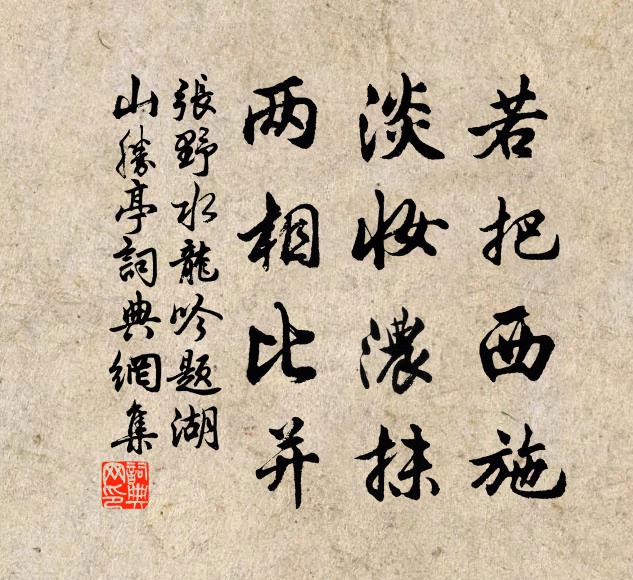 若把西施
淡妝濃抹
两相比并
張野水龍吟題湖
山勝亭詞典網集
詞典網印